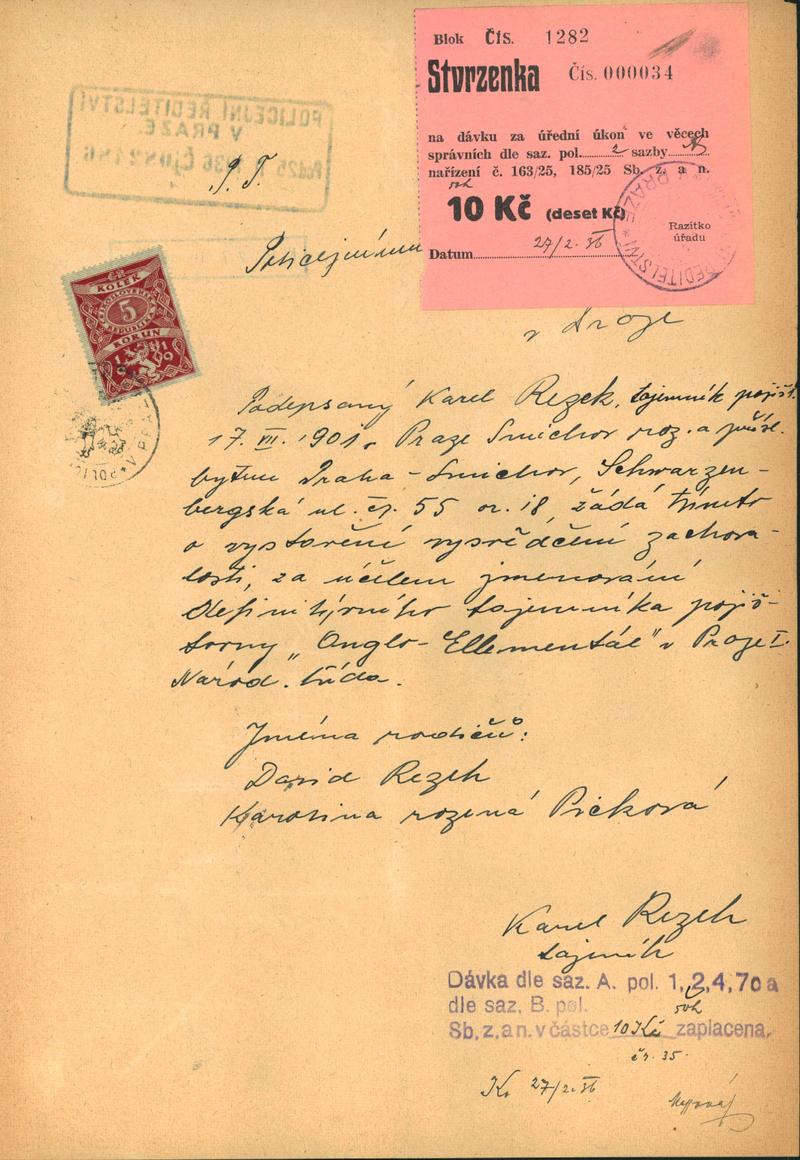 Blok Čís. 1282
Stvrzenka Čís. 000034
na dávku za úřední úkon ve věcech
správních dle saz. pol. 2 sazby A
nařízení č. 163/25, 185/25 Sb. z. a n.
10 Kč (deset Kč)
Razítko
úřadu
Datum 27/2. 36
POLICEJNÍ ŘEDITELSTVÍ
V PRAZE
P. T.
Policejnímu
v Praze
KOLEK
5
KORUN
1919
Podepsaný Karel Rezek, tajemník pojišť.
17. VII. 1901 v Praze Smíchov roz. a přísl.
bytem Praha-Smíchov, Schwarzen-
bergská ul. čp. 55 or. 18, žádá tímto
o vystavění vysvědčení zachova-
losti, za účelem jmenování
definitivního tajemníka pojiš-
ťovny „Anglo-Ellementál" v Praze I.
Národ. třída.
Jména rodičů:
David Rezek
Karolina rozená Picková
Karel Rezek
tajemník
Dávka dle saz. A. pol. 1, 2, 4, 7c a
dle saz. B. pol.
Sb. z. a n. v částce 10 Kč zaplacena.
čís. 35.
27/2. 36